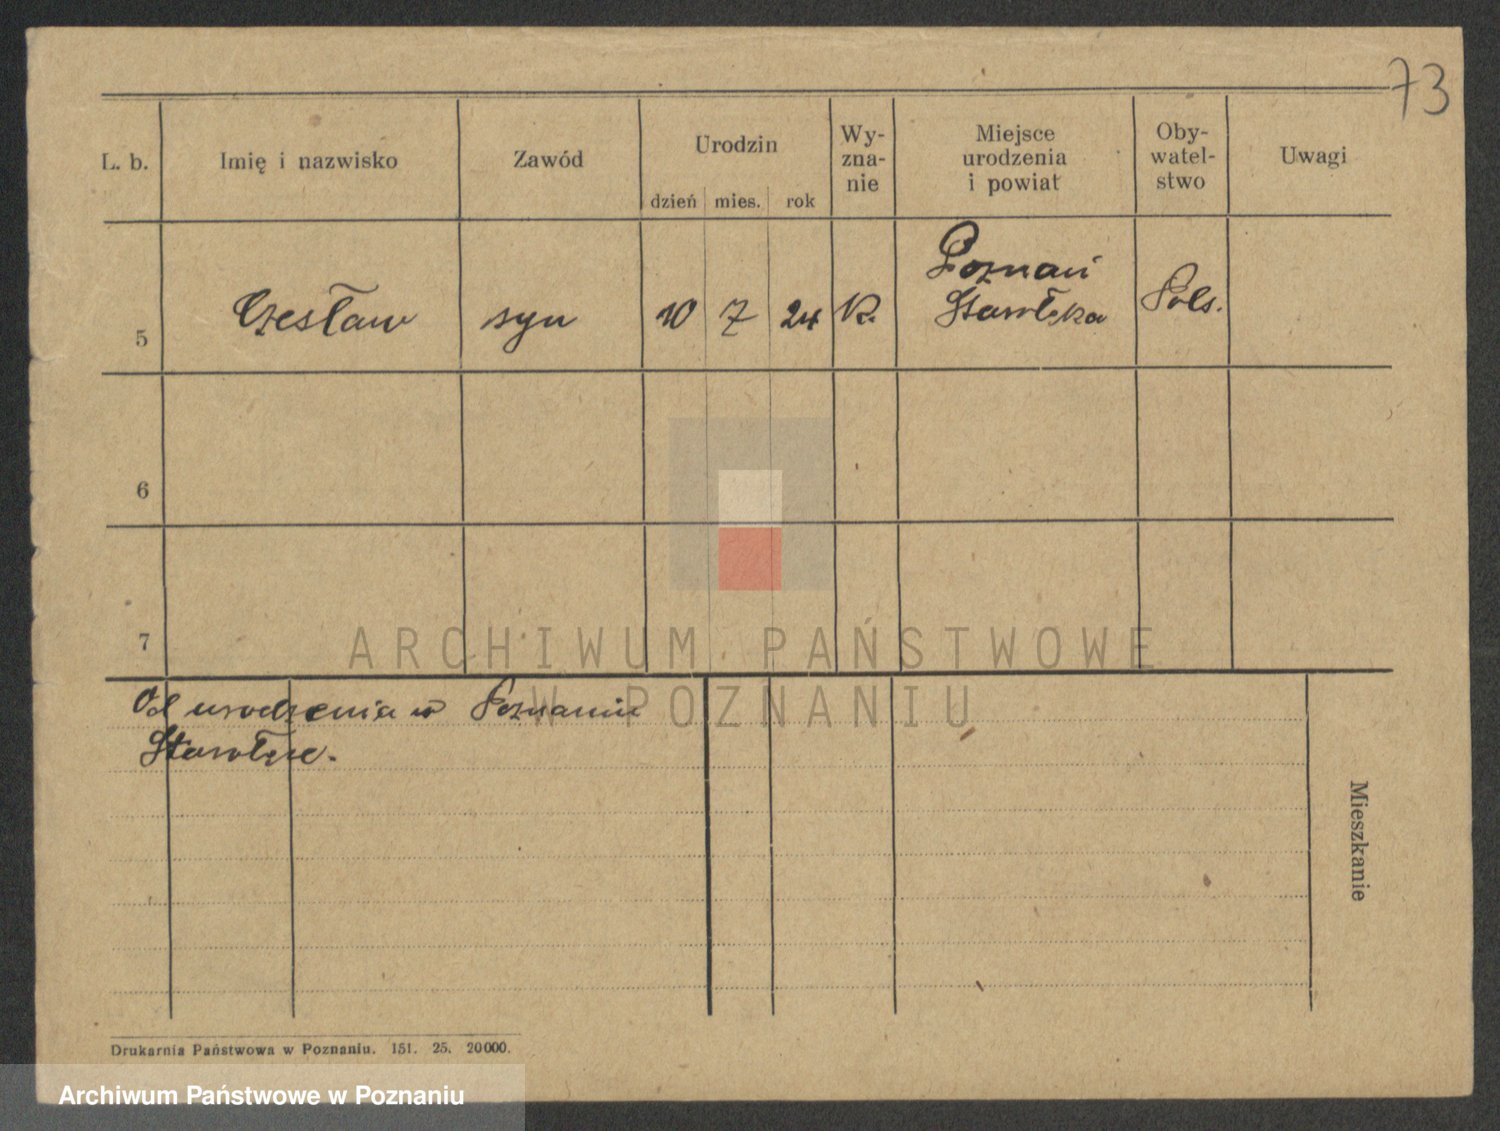 73
L. b.
Imię i nazwisko
Zawód
Urodzin
dzień mies. rok
Wy-
zna-
nie
Miejsce
urodzenia
i powiat
Oby-
watel-
stwo
Uwagi
5 Czesław syn 10 7 24 K. Poznań Pols.
Starołęka
6
7
ARCHIWUM PAŃSTWOWE
W POZNANIU
Od urodzenia w Poznaniu
Starołęce.
Mieszkanie
Drukarnia Państwowa w Poznaniu. 151. 25. 20000.
Archiwum Państwowe w Poznaniu